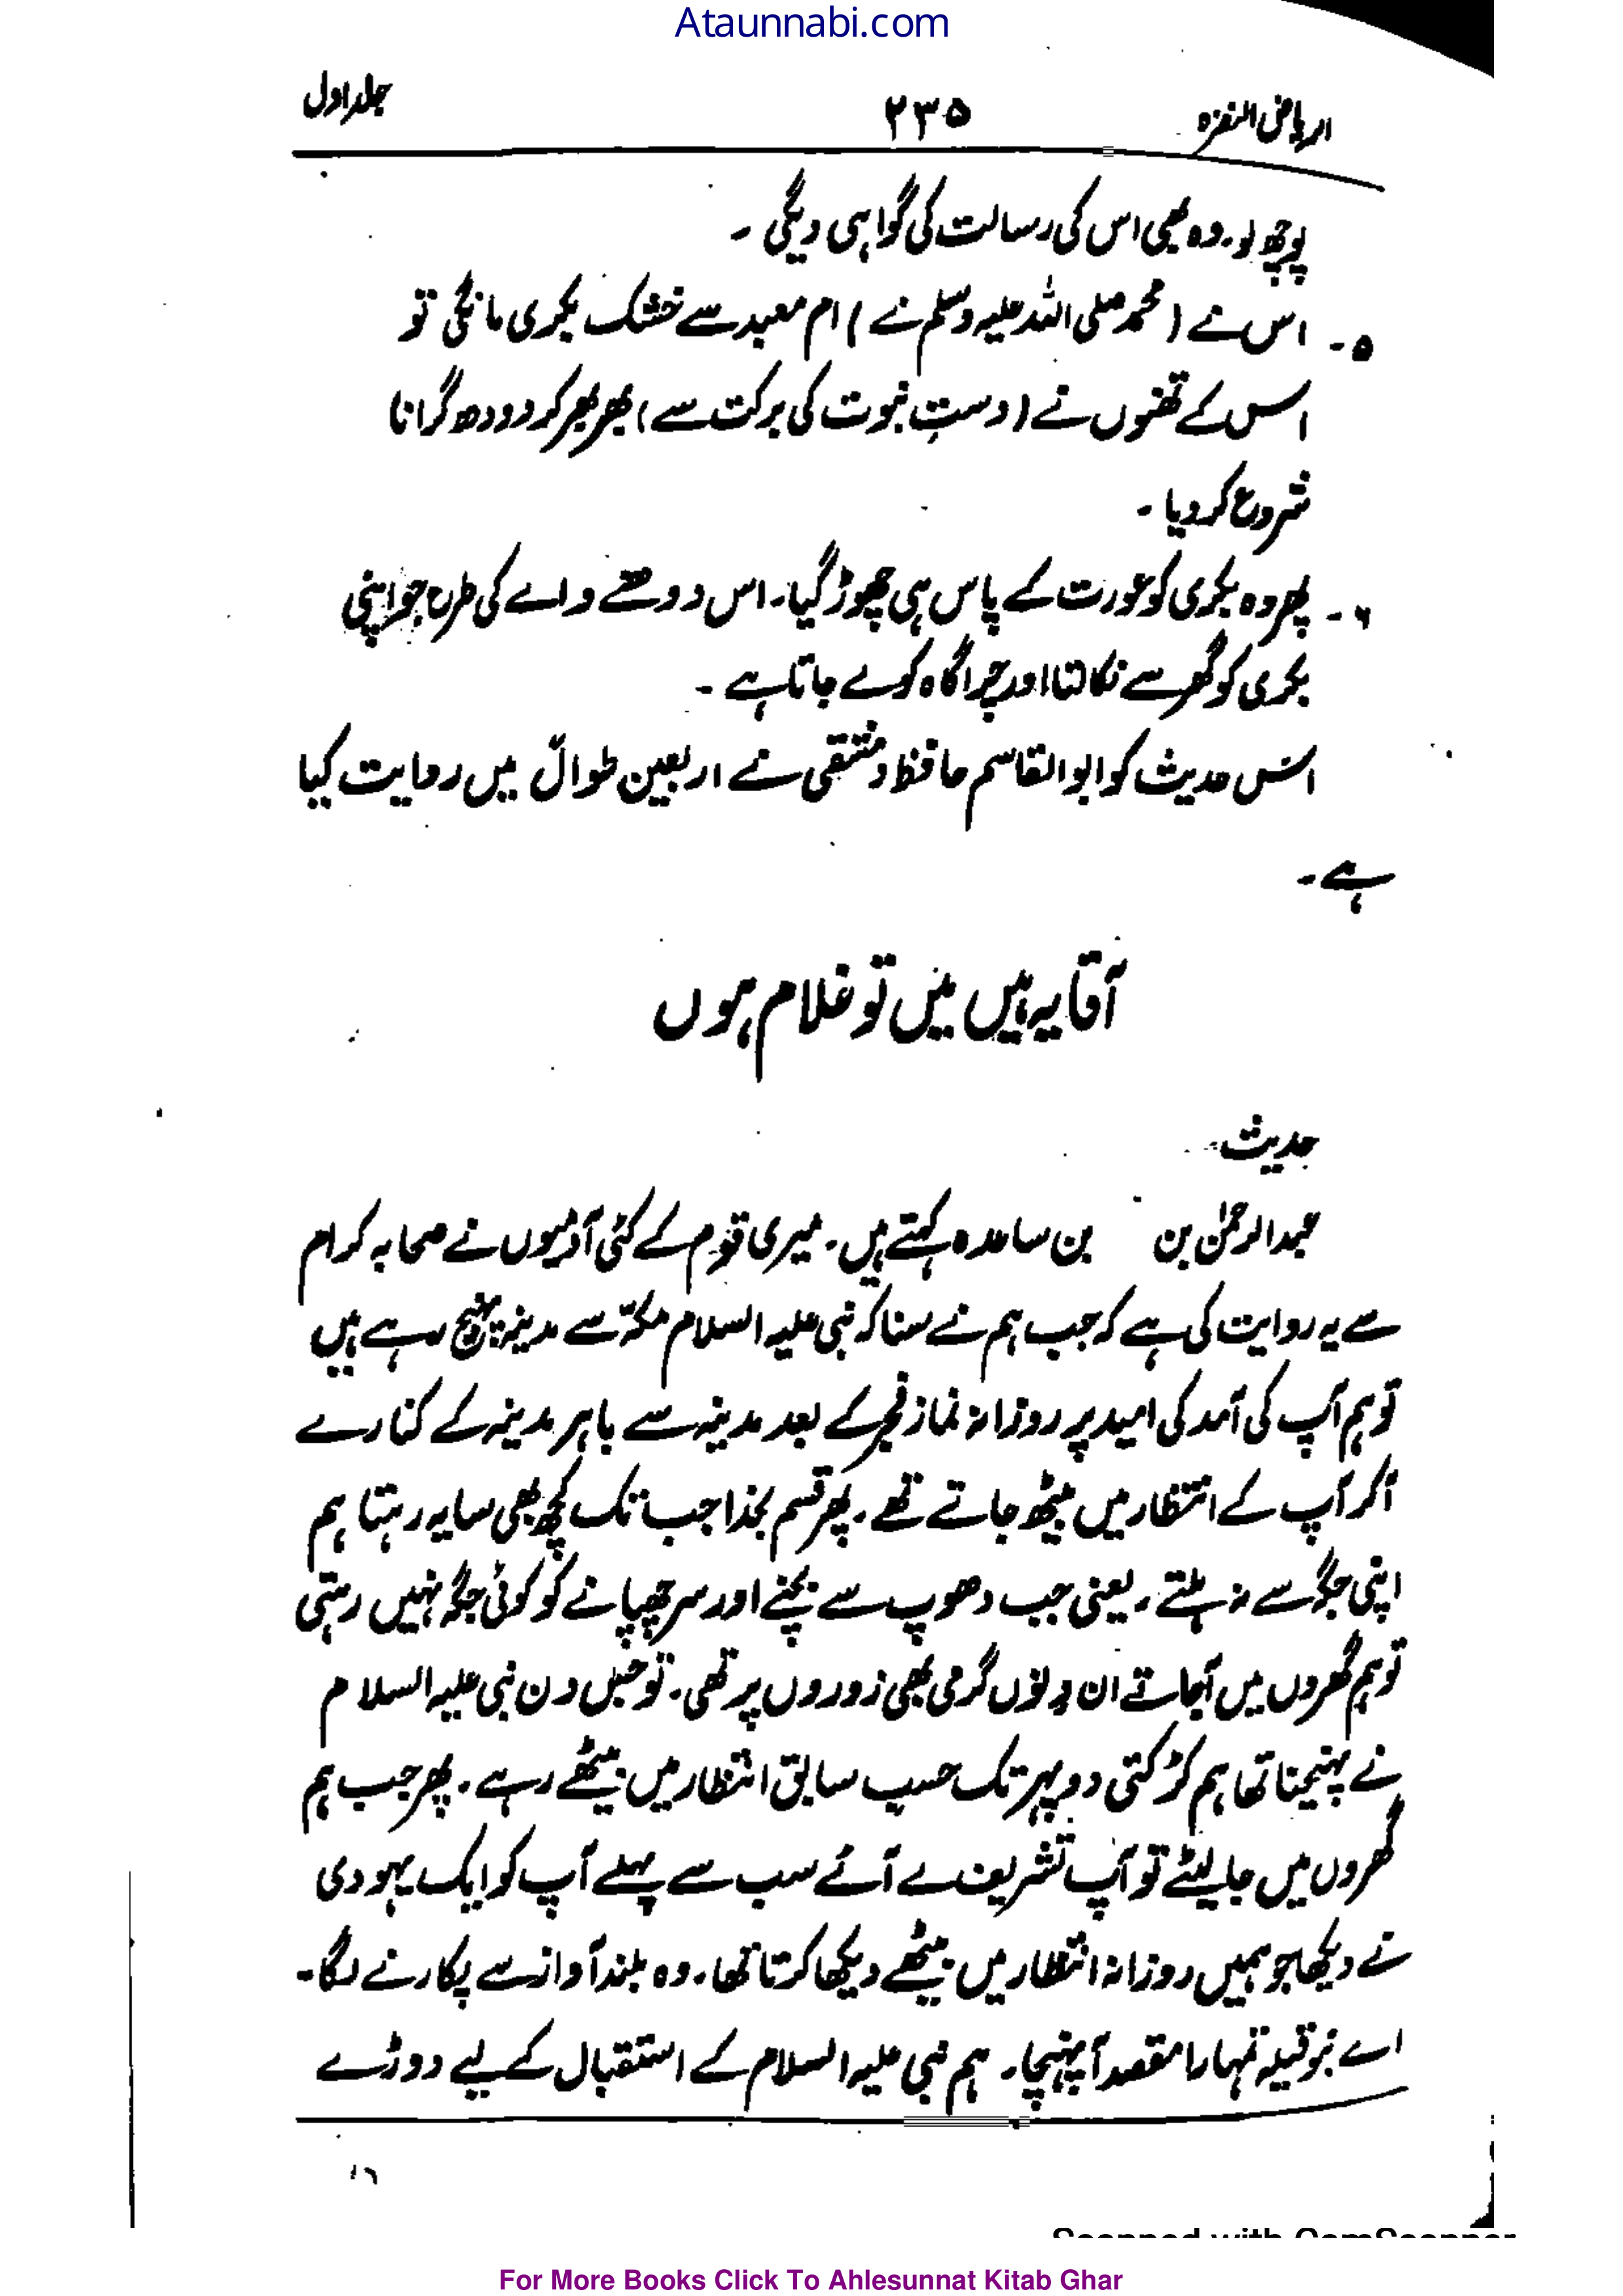 Ataunnabi.com
الریاض النضرہ ۲۳۵ جلد اول
پوچھ لو۔ وہ بھی اس کی رسالت کی گواہی دیگی ۔
۵۔ اس نے (محمد صلی اللہ علیہ وسلم نے) ام معبد سے خشک بکری مانگی تو
اس کے تھنوں نے (دستِ نبوت کی برکت سے) بھر بھر کر دودھ گرانا
شروع کر دیا ۔
۶۔ پھر وہ بکری کو عورت کے پاس ہی چھوڑ گیا۔ اس دوھنے والے کی طرح جو اپنی
بکری کو گھر سے نکالتا اور چراگاہ کو لے جاتا ہے ۔
اس حدیث کو ابوالقاسم حافظ دمشقی نے اربعین طوال میں روایت کیا
ہے ۔
آقا یہ ہیں میں تو غلام ہوں
حدیث
عبدالرحمٰن بن بن ساعدہ کہتے ہیں۔ میری قوم کے کئی آدمیوں نے صحابہ کرام
سے یہ روایت کی ہے کہ جب ہم نے سنا کہ نبی علیہ السلام مکہ سے مدینہ پہنچ رہے ہیں
تو ہم آپ کی آمد کی امید پر روزانہ نماز فجر کے بعد مدینہ سے باہر مدینہ کے کنارے
آکر آپ کے انتظار میں بیٹھ جاتے تھے۔ پھر قسم بخدا جب تک کچھ بھی سایہ رہتا ہم
اپنی جگہ سے نہ ہلتے۔ یعنی جب دھوپ سے بچنے اور سر چھپانے کو کوئی جگہ نہیں رہتی
تو ہم گھروں میں آجاتے ان دنوں گرمی بھی زوروں پر تھی۔ تو جس دن نبی علیہ السلام
نے پہنچنا تھا ہم کڑکتی دوپہر تک حسب سابق انتظار میں بیٹھے رہے۔ پھر جب ہم
گھروں میں جا لیٹے تو آپ تشریف لے آئے سب سے پہلے آپ کو ایک یہودی
نے دیکھا جو ہمیں روزانہ انتظار میں بیٹھے دیکھا کرتا تھا۔ وہ بلند آواز سے پکارنے لگا۔
اے بنو قیلہ تمہارا مقصد آپہنچا۔ ہم نبی علیہ السلام کے استقبال کے لیے دوڑے
Scanned with CamScanner
For More Books Click To Ahlesunnat Kitab Ghar